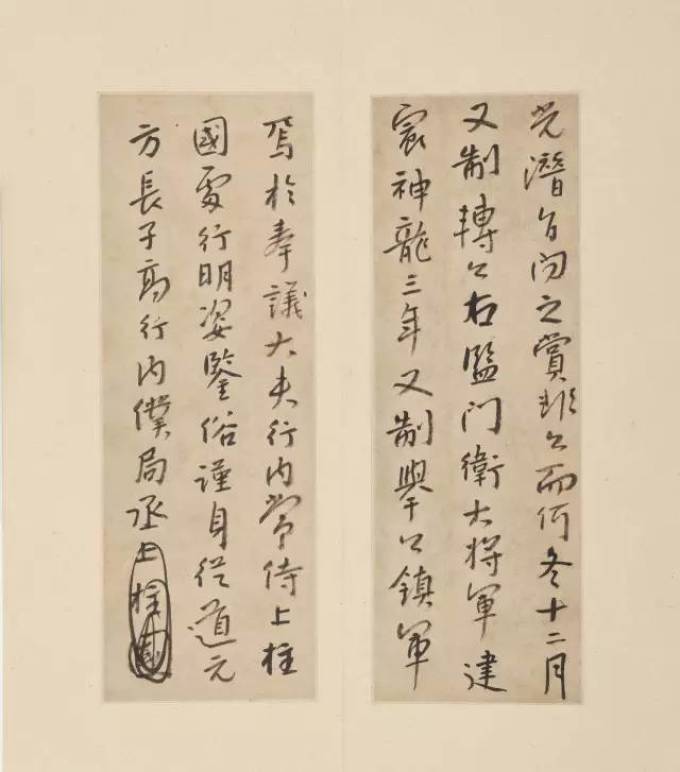 光潛自問之賞非公而何冬十二月
又制轉公右監門衛大將軍建
宸神龍三年又制舉公鎮軍
焉於奉議大夫行內常侍上柱
國處行明姿鑒俗謹身從道元
方長子高行內僕局丞上柱國